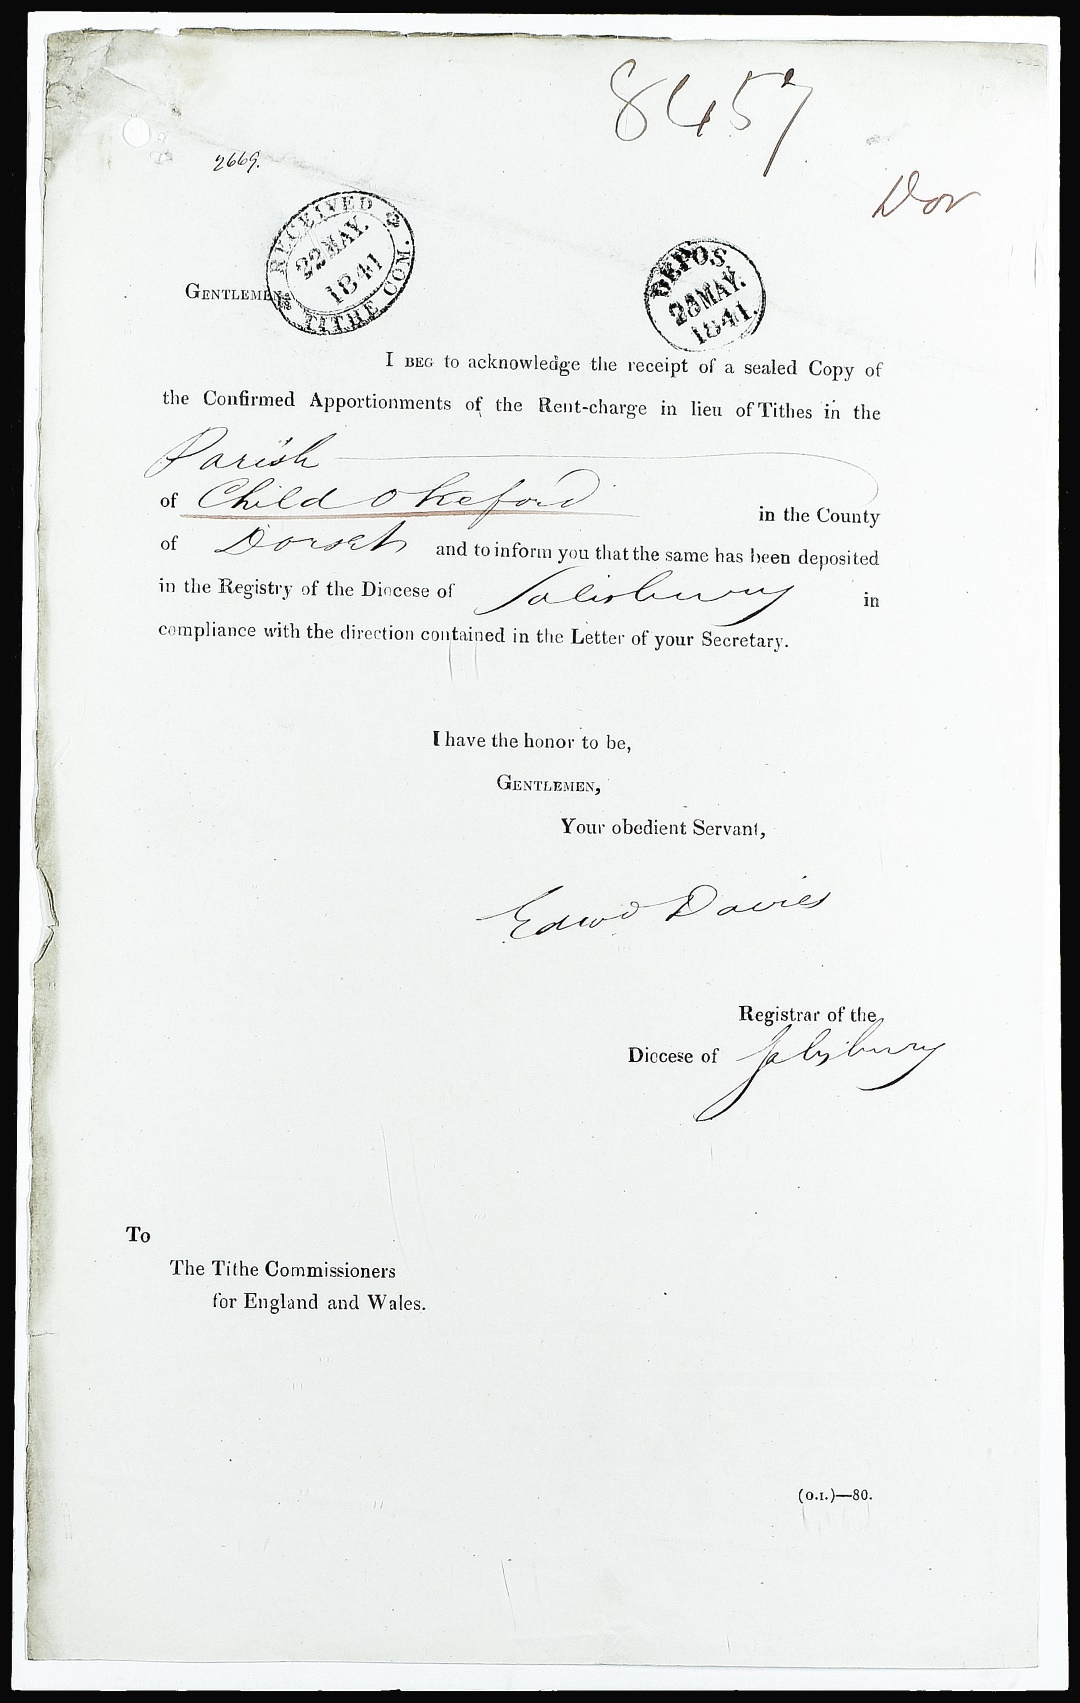 8457
Dor
2669.
RECEIVED
22 MAY.
1841
TITHE COM.
DEPOS.
28 MAY.
1841.
GENTLEMEN
I BEG to acknowledge the receipt of a sealed Copy of
the Confirmed Apportionments of the Rent-charge in lieu of Tithes in the
Parish
of Child Okeford in the County
of Dorset and to inform you that the same has been deposited
in the Registry of the Diocese of Salisbury in
compliance with the direction contained in the Letter of your Secretary.
I have the honor to be,
GENTLEMEN,
Your obedient Servant,
Edwd Davies
Registrar of the
Diocese of Salisbury
To
The Tithe Commissioners
for England and Wales.
(O.I.)—80.